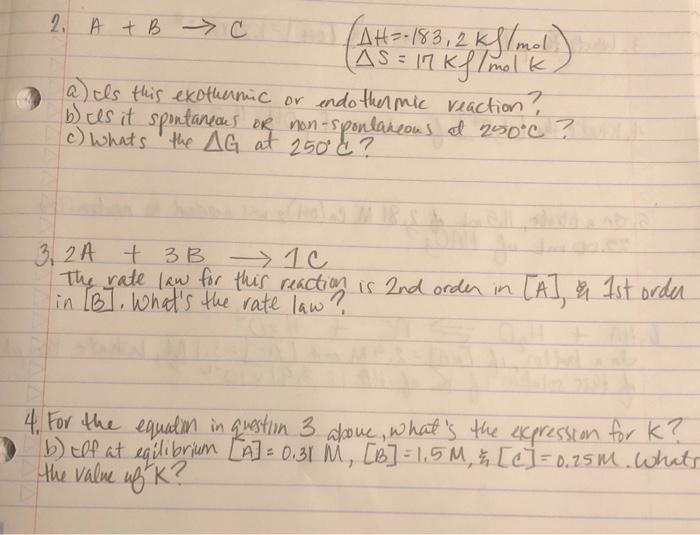 2. A + B → C (ΔH=-183,2 KJ/mol)
(ΔS = 17 KJ/mol K)
a) Is this exothermic or endothermic reaction?
b) Is it spontaneous OR non-spontaneous at 250°C ?
c) Whats the ΔG at 250°C ?
3. 2A + 3B → 1C
The rate law for this reaction is 2nd order in [A], & 1st order
in [B]. What's the rate law?
4. For the equation in question 3 above, what's the expression for K?
b) If at eqilibrium [A] = 0.31 M, [B] = 1.5 M, & [C] = 0.25M. Whats
the value of K?